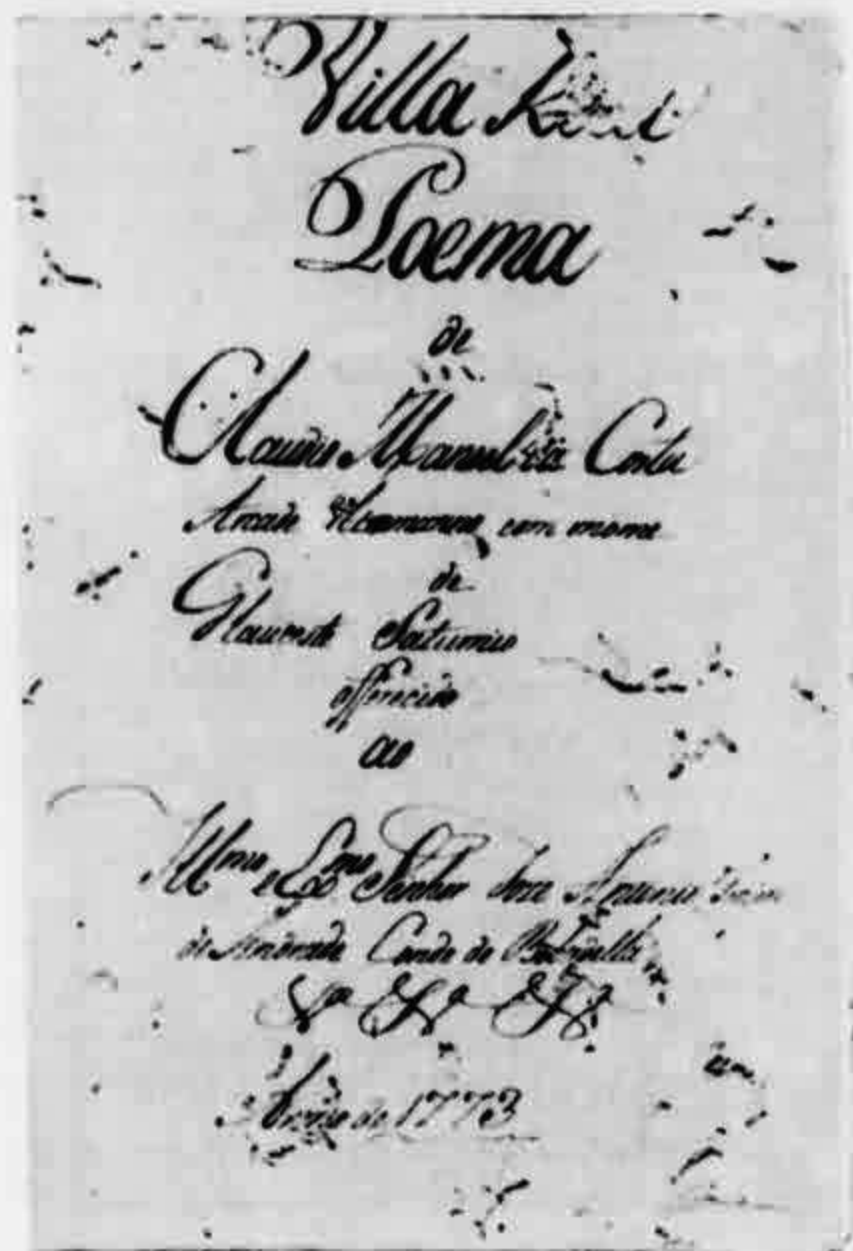 Villa Rica
Poema
de
Claudio Manuel da Costa
Arcade com nome
de
Glauceste Saturnio
offerecido
ao
Illmo e Exmo Senhor Joze Antonio
de Andrade Conde de Bobadella
&a &a &a
Anno de 1773